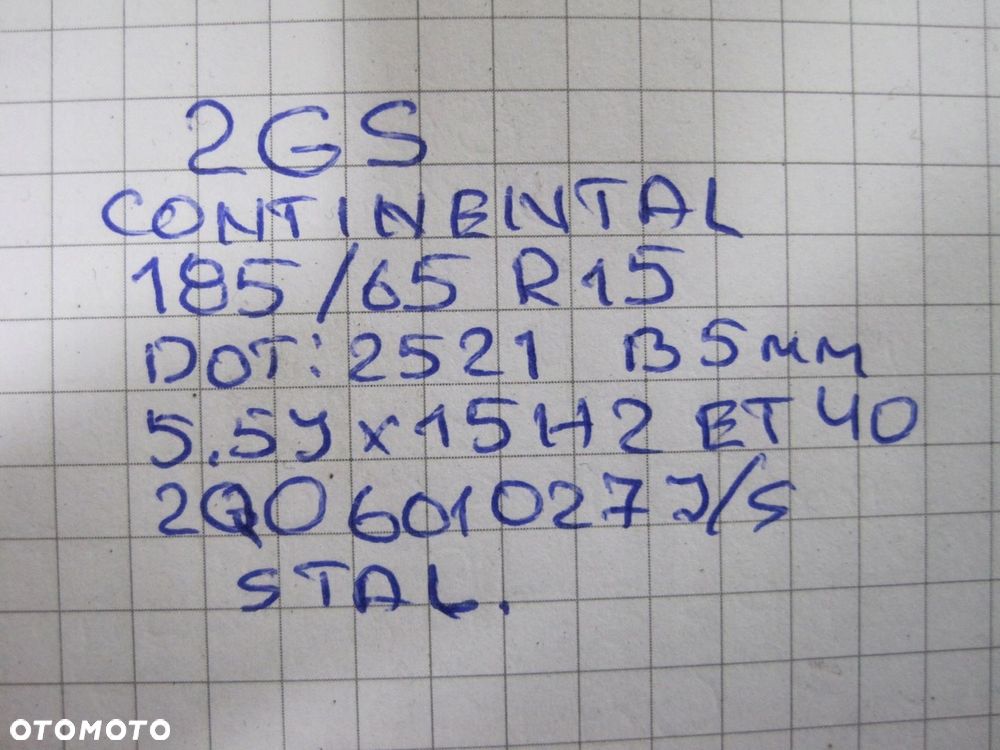 2GS
CONTINENTAL
185/65 R15
DOT: 2521 B5mm
5.5J x 15H2 ET 40
2Q0 601027 J/S
STAL.
OTOMOTO